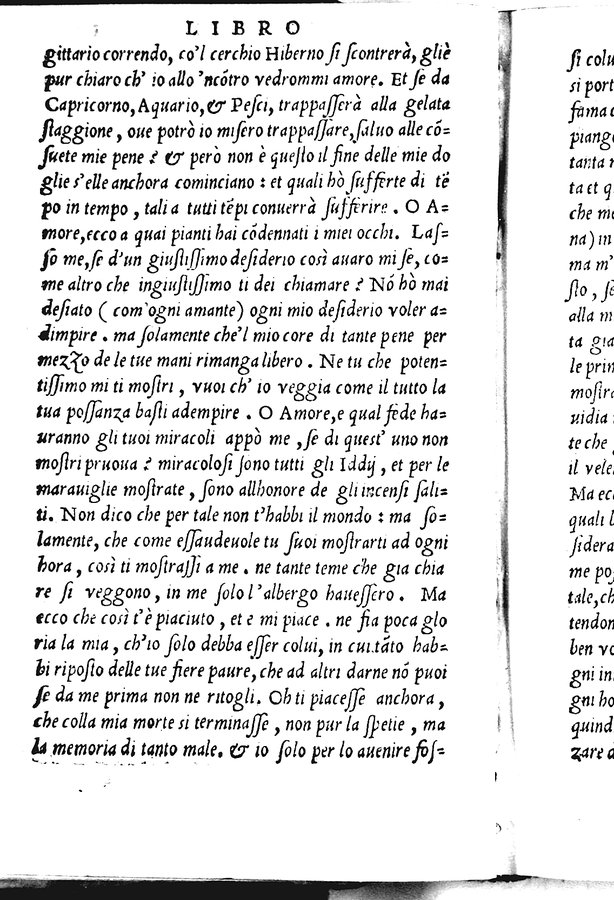 LIBRO
gittario correndo, co'l cerchio Hiberno si scontrerà, gliè
pur chiaro ch' io allo 'ncótro vedrommi amore. Et se da
Capricorno, Aquario, & Pesci, trappasserà alla gelata
staggione, oue potrò io misero trappassare, saluo alle cõ=
suete mie pene? & però non è questo il fine delle mie do
glie s'elle anchora cominciano: et quali hò sufferte di tẽ
po in tempo, tali a tutti tẽpi conuerrà sufferire. O A=
more, ecco a quai pianti hai códennati i miei occhi. Las=
so me, se d'un giustissimo desiderio così auaro mi se, co=
me altro che ingiustissimo ti dei chiamare? Nó hò mai
desiato (com'ogni amante) ogni mio desiderio voler a=
dimpire. ma solamente che'l mio core di tante pene per
mezzo de le tue mani rimanga libero. Ne tu che poten=
tissimo mi ti mostri, vuoi ch' io veggia come il tutto la
tua possanza basti adempire. O Amore, e qual fede ha=
uranno gli tuoi miracoli appò me, se di quest' uno non
mostri pruoua? miracolosi sono tutti gli Iddij, et per le
marauiglie mostrate, sono allhonore de gli incensi sali=
ti. Non dico che per tale non t'habbi il mondo: ma so=
lamente, che come essaudeuole tu suoi mostrarti ad ogni
hora, così ti mostrassi a me. ne tante teme che gia chia
re si veggono, in me solo l'albergo hauessero. Ma
ecco che così t'è piaciuto, et e mi piace. ne fia poca glo
ria la mia, ch'io solo debba esser colui, in cui tãto hab=
bi riposto delle tue fiere paure, che ad altri darne nó puoi
se da me prima non ne ritogli. Oh ti piacesse anchora,
che colla mia morte si terminasse, non pur la spetie, ma
la memoria di tanto male. & io solo per lo auenire fos=
si colu
si port
fama
piang
tanta
ta et q
che m
na) in
ma m'
sto, se
alla m
ta gia
le prin
mostr
uidia
te che
il vele
Ma ec
quali
sidera
me po
tale, ch
tendon
ben vo
gni in
gni ho
quind
zare